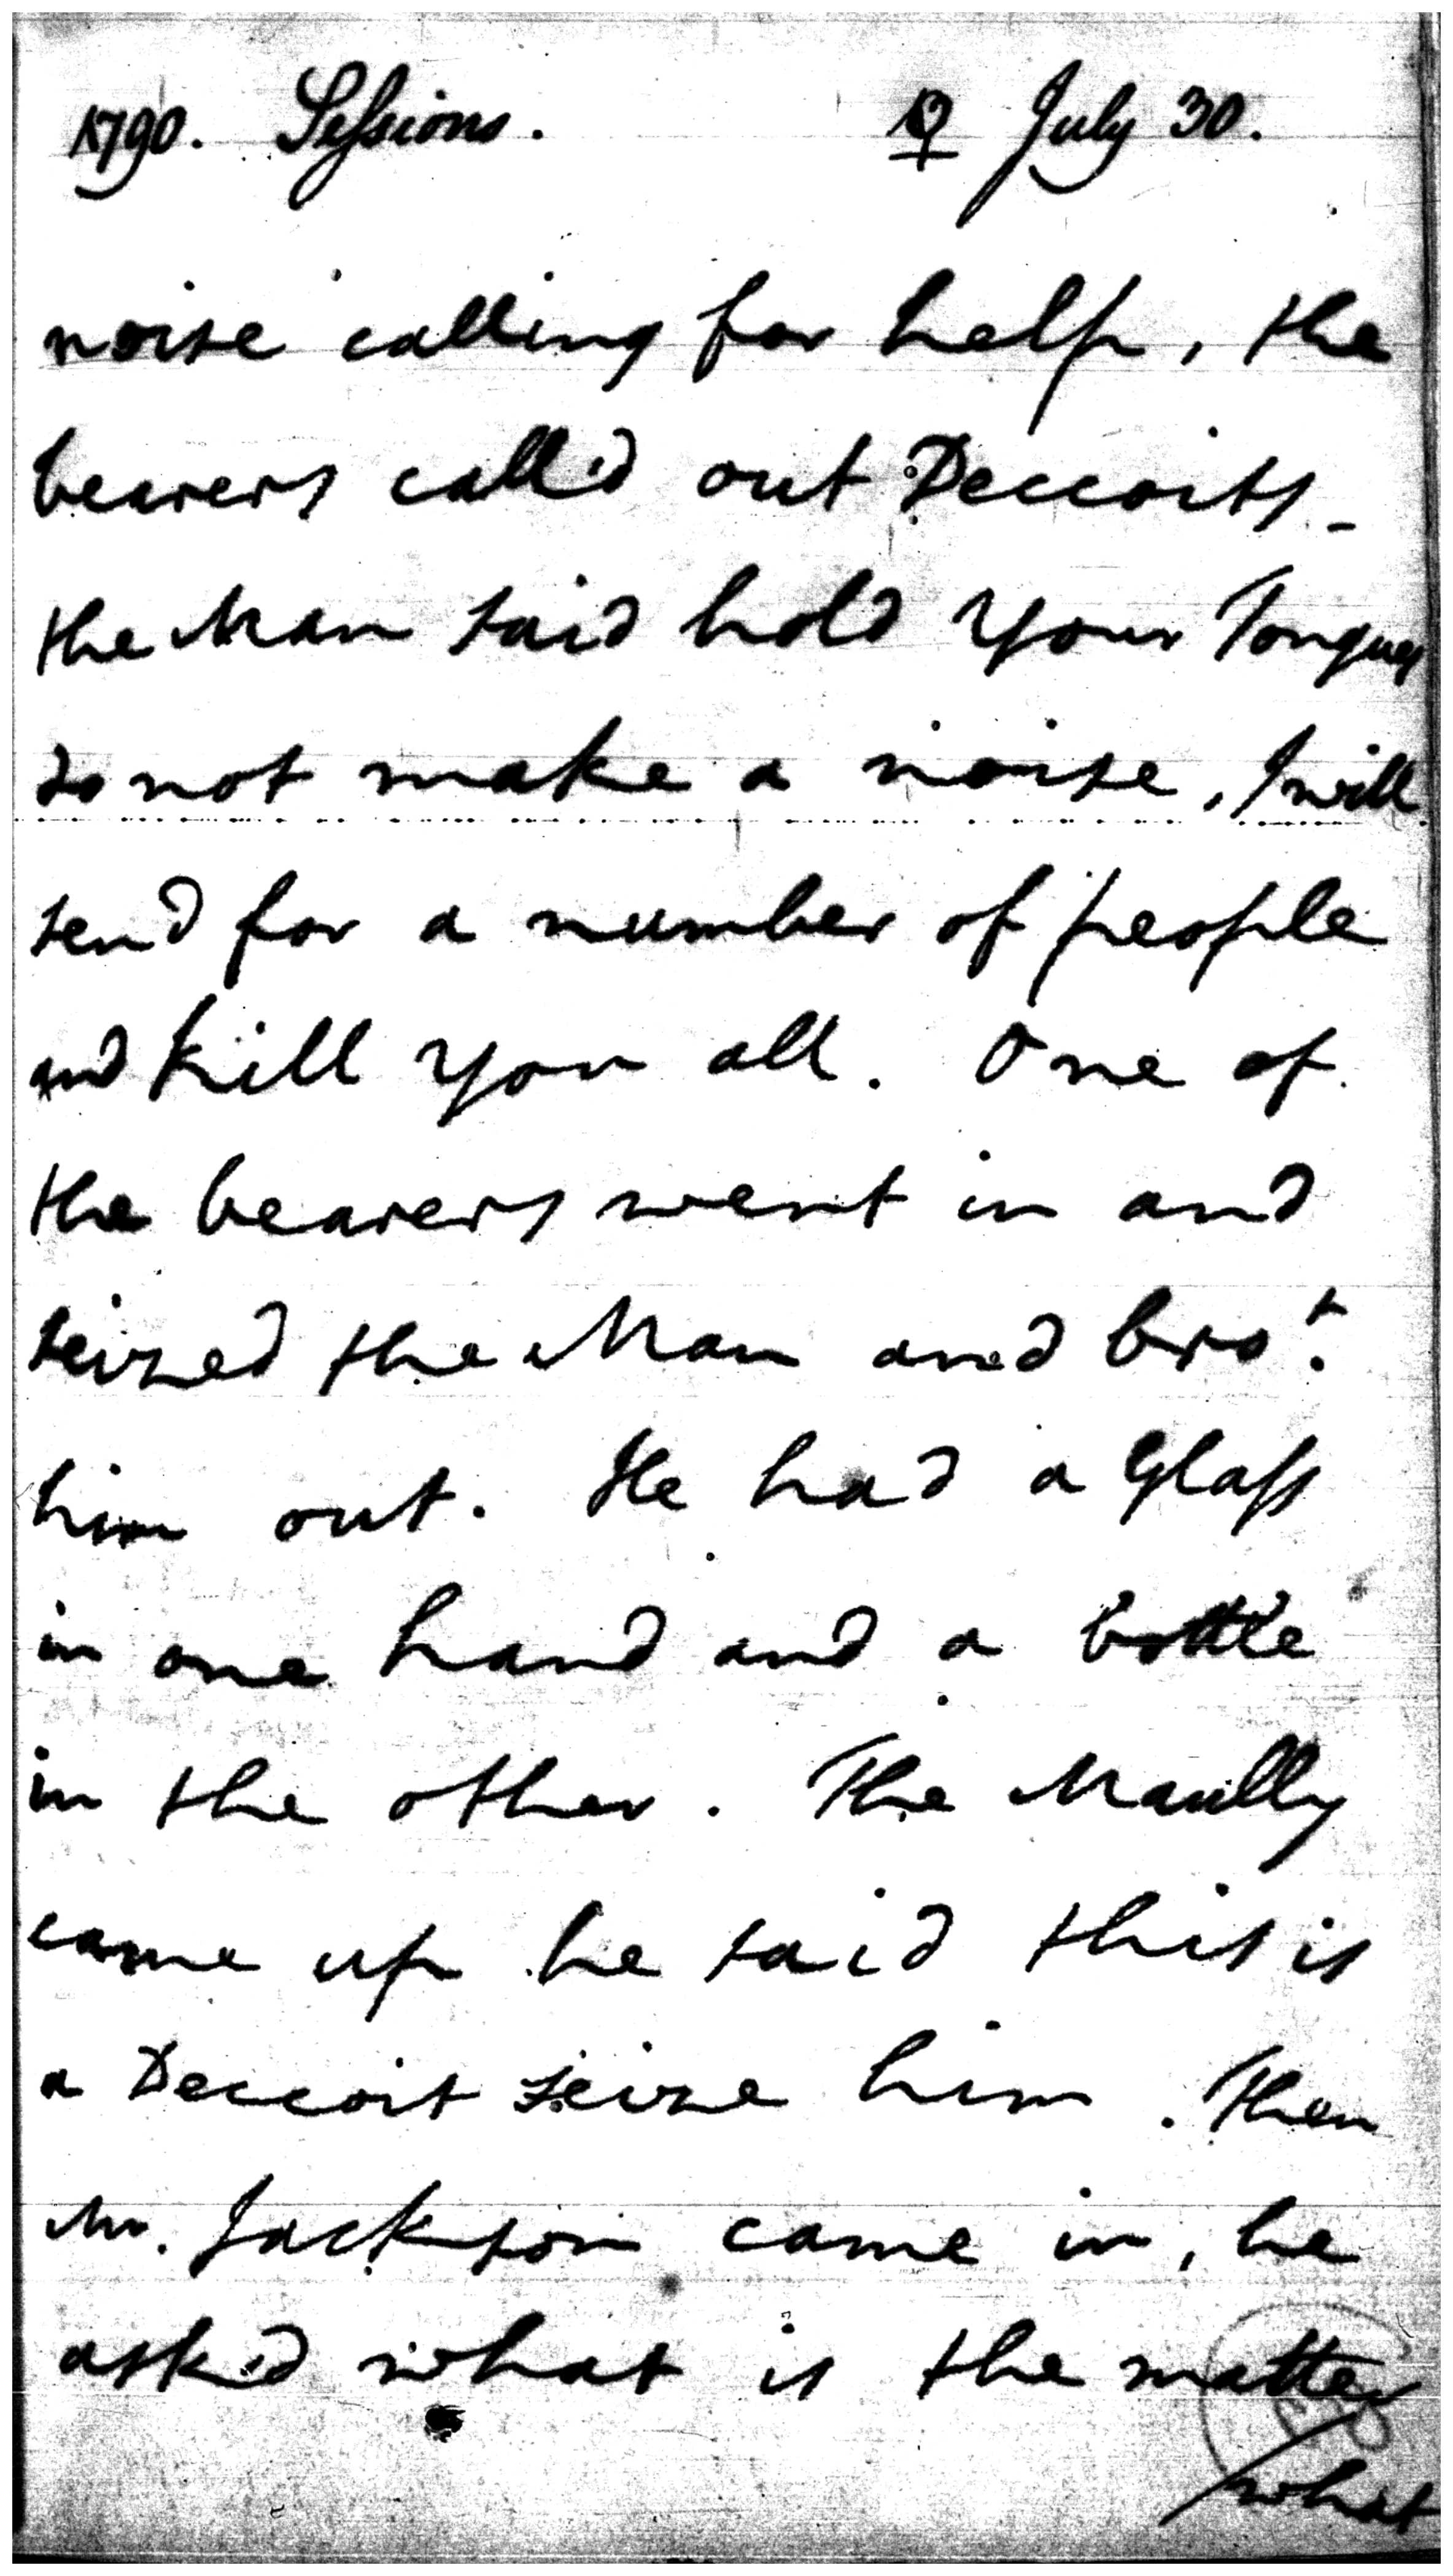 1790. Sessions. ♀ July 30.
noise calling for help, the
bearers call'd out Deccoits _
the Man said hold your Tongues
do not make a noise, I will
send for a number of people
and kill you all. One of
the bearers went in and
seized the Man and bro.t
him out. He had a Glass
in one hand and a bottle
in the other. The Maully
came up he said this is
a Deccoit seize him. Then
Mr. Jackson came in, he
ask'd what is the matter
what